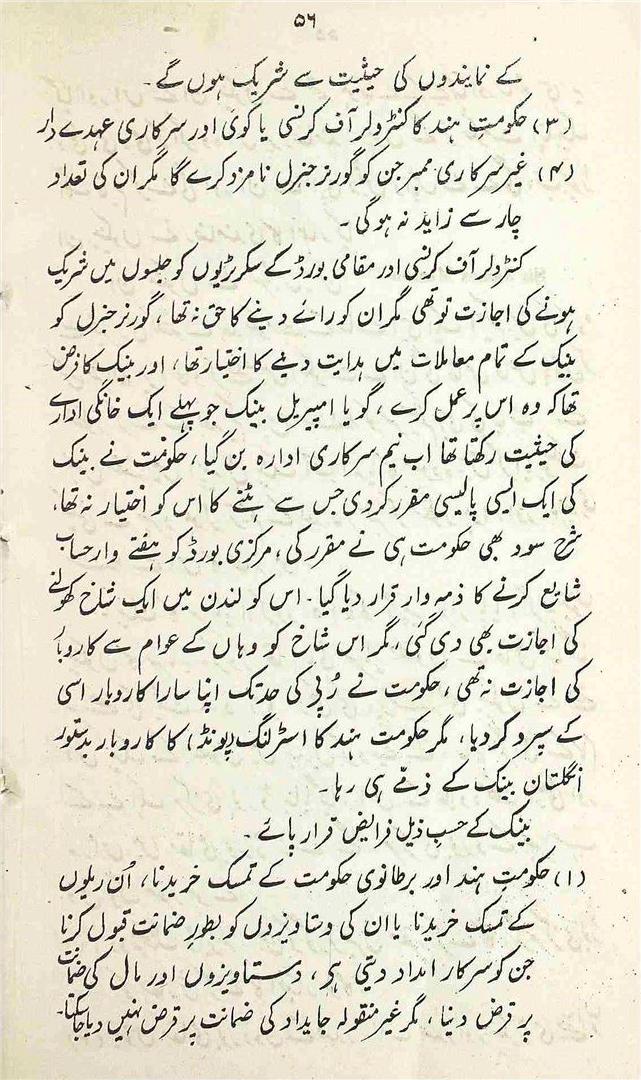 ۵۶
کے نمایندوں کی حیثیت سے شریک ہوں گے۔
(۳) حکومتِ ہند کا کنٹرولر آف کرنسی یا کوئی اور سرکاری عہدے دار
(۴) غیر سرکاری ممبر جن کو گورنر جنرل نامزد کرے گا مگر ان کی تعداد
چار سے زاید نہ ہوگی۔
کنٹرولر آف کرنسی اور مقامی بورڈ کے سکرٹریوں کو جلسوں میں شریک
ہونے کی اجازت تو تھی مگر ان کو رائے دینے کا حق نہ تھا، گورنر جنرل کو
بینک کے تمام معاملات میں ہدایت دینے کا اختیار تھا، اور بینک کا فرض
تھا کہ وہ اس پر عمل کرے، گویا امپیریل بینک جو پہلے ایک خانگی ادارے
کی حیثیت رکھتا تھا اب نیم سرکاری ادارہ بن گیا، حکومت نے بینک
کی ایک ایسی پالیسی مقرر کر دی جس سے ہٹنے کا اس کو اختیار نہ تھا،
شرح سود بھی حکومت ہی نے مقرر کی، مرکزی بورڈ کو ہفتے وار حساب
شایع کرنے کا ذمہ وار قرار دیا گیا۔ اس کو لندن میں ایک شاخ کھولنے
کی اجازت بھی دی گئی، مگر اس شاخ کو وہاں کے عوام سے کاروبار
کی اجازت نہ تھی، حکومت نے رُپی کی حد تک اپنا سارا کاروبار اسی
کے سپرد کر دیا، مگر حکومت ہند کا اسٹرلنگ (پونڈ) کا کاروبار بدستور
انگلستان بینک کے ذمّے ہی رہا۔
بینک کے حسبِ ذیل فرایض قرار پائے۔
(۱) حکومتِ ہند اور برطانوی حکومت کے تمسک خریدنا، اُن ریلوں
کے تمسک خریدنا یا ان کی دستاویزوں کو بطورِ ضمانت قبول کرنا
جن کو سرکار امداد دیتی ہی، دستاویزوں اور مال کی ضمانت
پر قرض دینا، مگر غیر منقولہ جایداد کی ضمانت پر قرض نہیں دیا جا سکتا۔